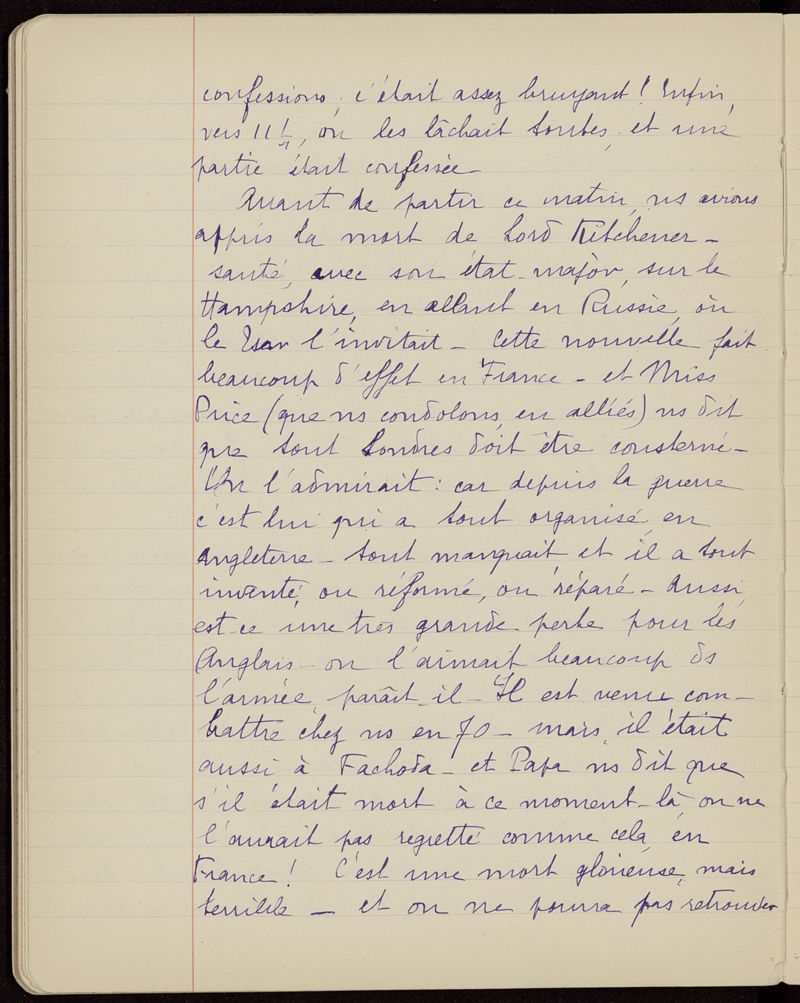 confessions, c'était assez bruyant ! Enfin,
vers 11 h 1/2, on les lâchait toutes, et une
partie était confessée _
Avant de partir ce matin, ns avions
appris la mort de Lord Kitchener _
sauté, avec son état-major, sur le
Hampshire, en allant en Russie, où
le Tsar l'invitait _ Cette nouvelle fait
beaucoup d'effet en France _ et Miss
Price (que ns condolons, en alliés) ns dit
que tout Londres doit être consterné _
On l'admirait : car depuis la guerre
c'est lui qui a tout organisé, en
Angleterre _ tout manquait, et il a tout
inventé, ou réformé, ou réparé _ Aussi,
est-ce une très grande perte pour les
Anglais _ on l'aimait beaucoup ds
l'armée, paraît-il _ Il est venu com-
battre chez ns en 70 _ mais, il était
aussi à Fachoda _ et Papa ns dit que
s'il était mort à ce moment-là on ne
l'aurait pas regretté comme cela, en
France ! C'est une mort glorieuse, mais
terrible _ et on ne pourra pas retrouver